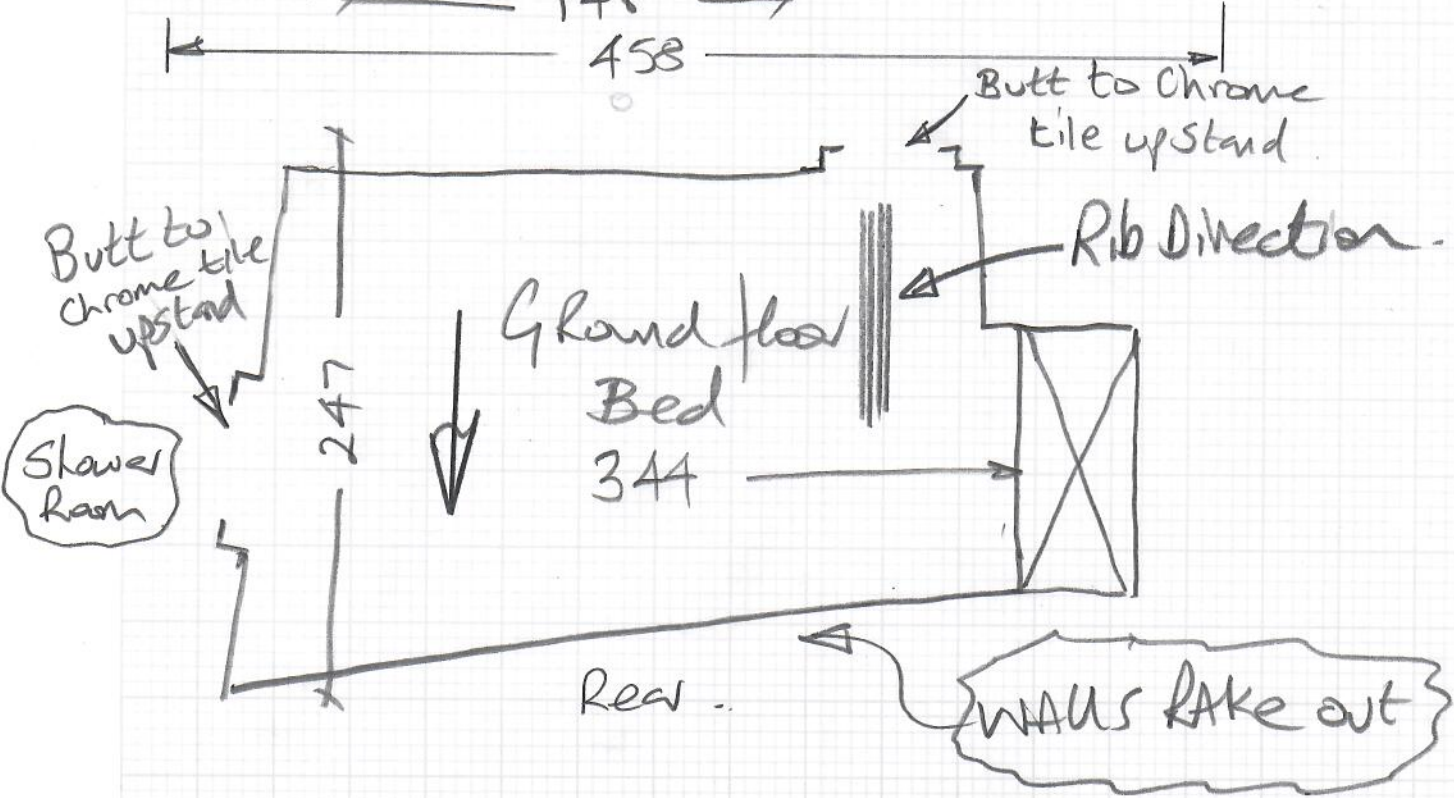 458
Butt to Chrome
tile upstand
Butt to
chrome tile
upstand
Rib Direction.
Ground floor
Bed
344
247
Shower
Room
Rear.
WALLS RAKE out